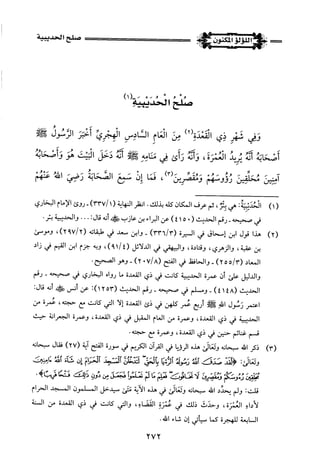 صلح الحديبية
اللؤلؤ المكنون
صُلْحُ الْحُدَيْبِيَةِ (١)
وَفِي شَهْرِ ذِي الْقَعْدَةِ (٢) مِنَ الْعَامِ السَّادِسِ الْهِجْرِيِّ أَخْبَرَ الرَّسُولُ ﷺ
أَصْحَابَهُ أَنَّهُ يُرِيدُ الْعُمْرَةَ، وَأَنَّهُ رَأَى فِي مَنَامِهِ ﷺ أَنَّهُ دَخَلَ الْبَيْتَ هُوَ وَأَصْحَابُهُ
آمِنِينَ مُحَلِّقِينَ رُؤُوسَهُمْ وَمُقَصِّرِينَ (٣)، فَمَا إِنْ سَمِعَ الصَّحَابَةُ رَضِيَ اللهُ عَنْهُمْ
(١) الْحُدَيْبِيَةُ: هي بِئْرٌ، ثم عرف المكان كله بذلك. انظر النهاية (٣٣٧/١)، روى الإمام البخاري
في صحيحه ـ رقم الحديث (٤١٥٠) عن البراء بن عازب أنه قال: ... والحديبية بئر.
(٢) هذا قول ابن إسحاق في السيرة (٣٣٦/٣) ـ وابن سعد في طبقاته (٢٩٧/٢)، وموسى
بن عقبة، والزهري، وقتادة، والبيهقي في الدلائل (٩١/٤)، وبه جزم ابن القيم في زاد
المعاد (٢٥٥/٣) ـ والحافظ في الفتح (٢٠٧/٨) ـ وهو الصحيح.
والدليل على أن عمرة الحديبية كانت في ذي القعدة ما رواه البخاري في صحيحه ـ رقم
الحديث (٤١٤٨) ـ ومسلم في صحيحه ـ رقم الحديث (١٢٥٣): عن أنس أنه قال:
اعتمر رسول الله ﷺ أربع عمر كلهن في ذي القعدة إلا التي كانت مع حجته، عمرة من
الحديبية في ذي القعدة، وعمرة من العام المقبل في ذي القعدة، وعمرة الجعرانة حيث
قسم غنائم حنين في ذي القعدة، وعمرة مع حجته.
(٣) ذكر الله سبحانه وتعالى هذه الرؤيا في القرآن الكريم في سورة الفتح آية (٢٧) فقال سبحانه
وتعالى: ﴿لَقَدْ صَدَقَ اللَّهُ رَسُولَهُ الرُّؤْيَا بِالْحَقِّ لَتَدْخُلُنَّ الْمَسْجِدَ الْحَرَامَ إِن شَاءَ اللَّهُ ءَامِنِينَ
مُحَلِّقِينَ رُءُوسَكُمْ وَمُقَصِّرِينَ لَا تَخَافُونَ فَعَلِمَ مَا لَمْ تَعْلَمُوا فَجَعَلَ مِن دُونِ ذَلِكَ فَتْحًا قَرِيبًا﴾.
قلت: ولم يحدد الله سبحانه وتعالى في هذه الآية متى سيدخل المسلمون المسجد الحرام
لأداء العُمْرَة، وحدث ذلك في عُمْرَةِ القَضَاءِ، والتي كانت في ذي القعدة من السنة
السابعة للهجرة كما سيأتي إن شاء الله.
٢٧٢